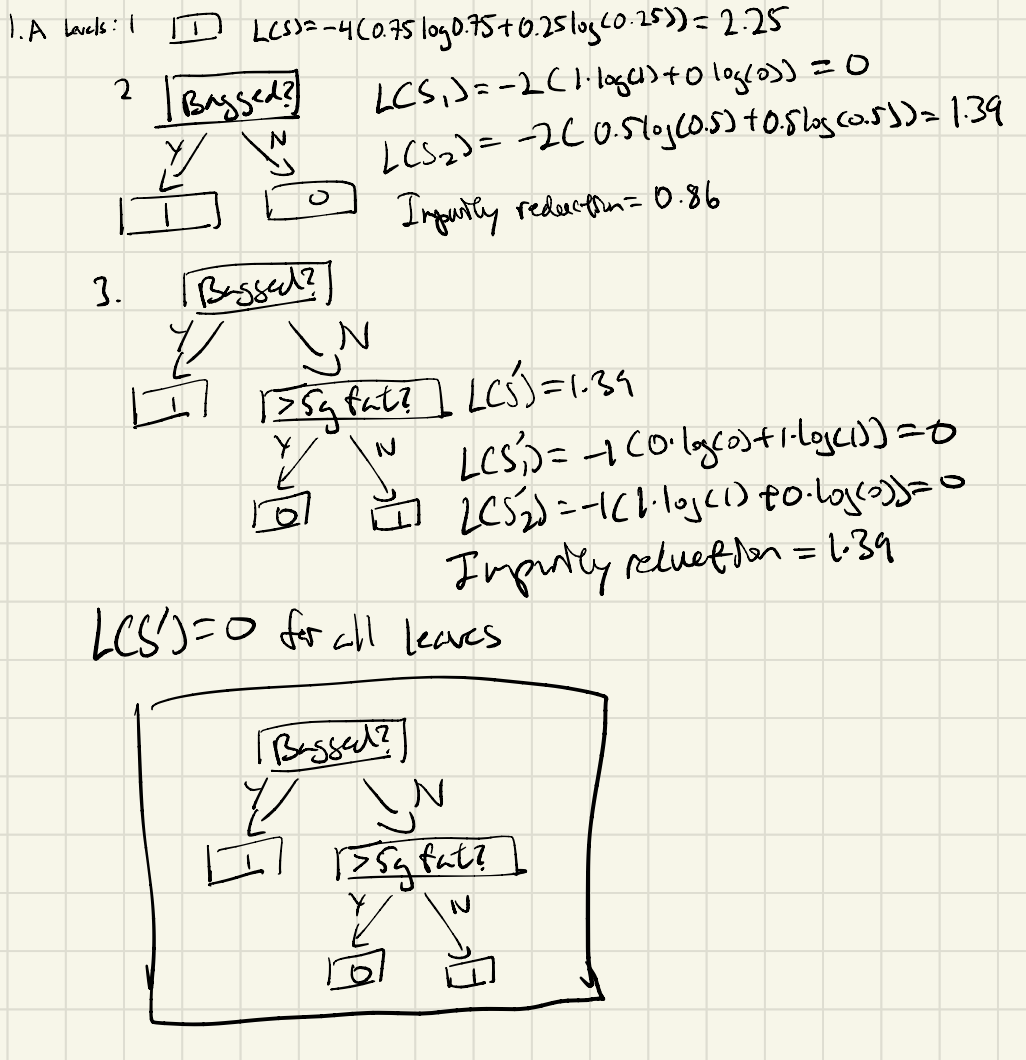 1.A Levels: 1 1 L(S)=-4(0.75 log0.75+0.25log(0.25))=2.25
2 Bagged? L(S₁)=-2(1·log(1)+0 log(0))=0
Y N L(S₂)=-2(0.5log(0.5)+0.5log(0.5))=1.39
1 0 Impurity reduction=0.86
3. Bagged?
Y N
1 >5g fat? L(S')=1.39
Y N L(S'₁)=-1(0·log(0)+1·log(1))=0
0 1 L(S'₂)=-1(1·log(1)+0·log(0))=0
Impurity reduction=1.39
L(S')=0 for all leaves
Bagged?
Y N
1 >5g fat?
Y N
0 1